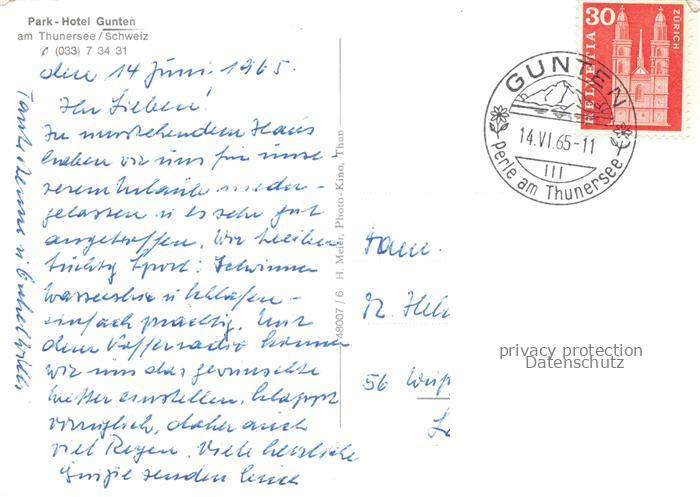 Park - Hotel Gunten
am Thunersee/Schweiz
✆ (033) 7 34 31
den 14 Juni. 1965.
Ihr Lieben!
In umstehendem Haus
haben wir uns für unse-
seren Urlaub nieder-
gelassen u es sehr gut
angetroffen. Wir treiben
tüchtig Sport: Schwimmen
Wasserski u schlafen -
einfach prächtig. Mit
dem Kofferradio können
wir uns das gewünschte
Wetter einstellen, klappt
vorzüglich, daher auch
viel Regen. Viele herzliche
Grüße senden Euch
Tante u Onkel
48007/6 H. Meier, Photo-Kino, Thun
HELVETIA
30
ZÜRICH
GUNTEN
14.VI.65-11
III
Perle am Thunersee
Fam.
56
privacy protection
Datenschutz